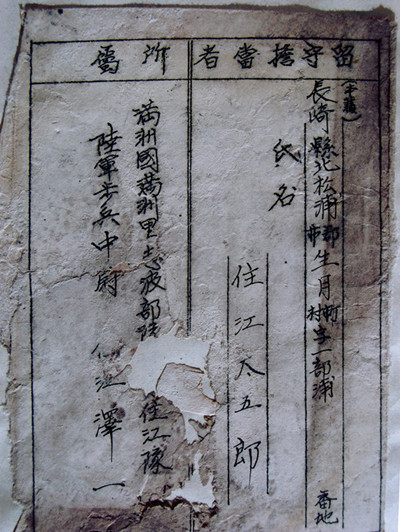 留守擔當者
(本籍)
長崎縣北松浦郡市生月町村字一部浦 番地
氏名
住江太五郎
所屬
満洲國満洲里志波部隊 住江隊
陸軍歩兵中尉 住江澤一